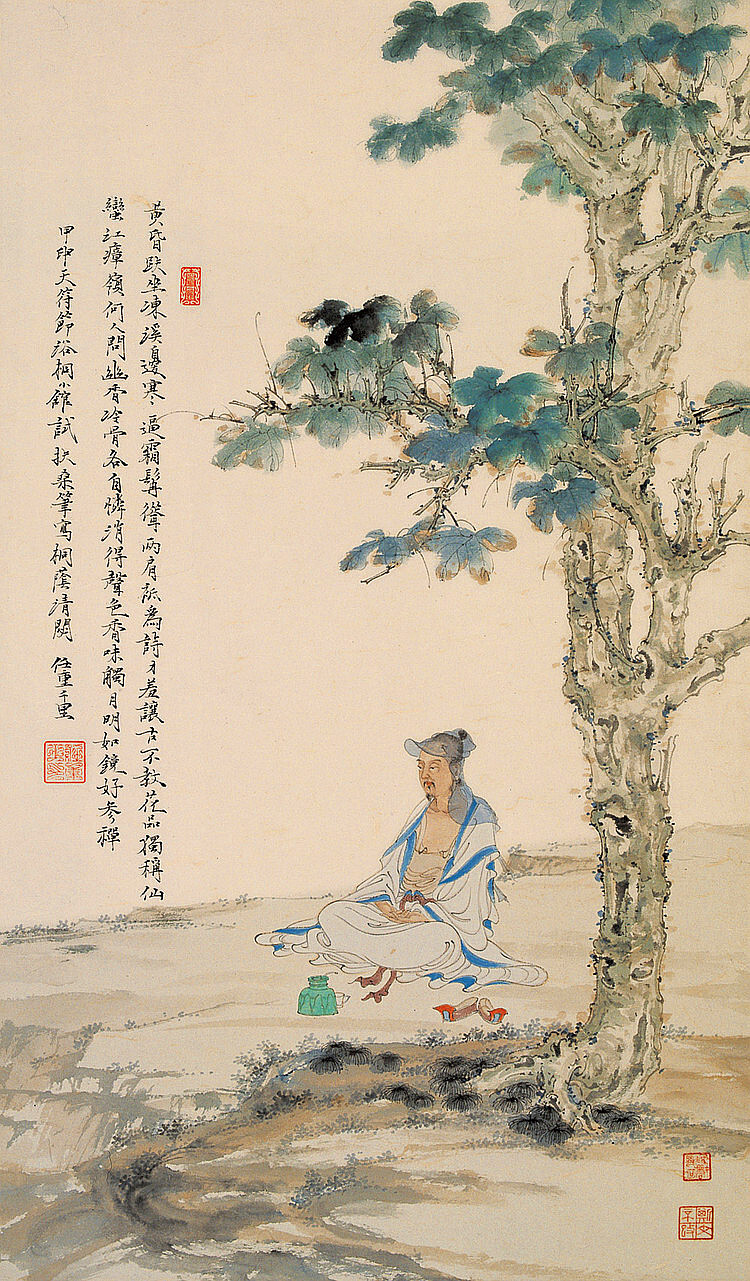 黃昏趺坐凍溪邊寒逼霜髯聳兩肩祇為詩才羞讓古不教花品獨稱仙
蠻江瘴嶺何人問幽香冷骨各自憐消得聲色香味觸月明如鏡好參禪
甲申天符節浴桐小館試扶桑筆寫桐蔭清 任重千里